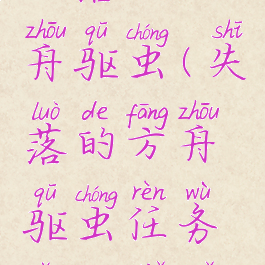 zhōu qū chóng shī
舟驱虫(失
luò de fāng zhōu
落的方舟
qū chóng rèn wù
驱虫任务